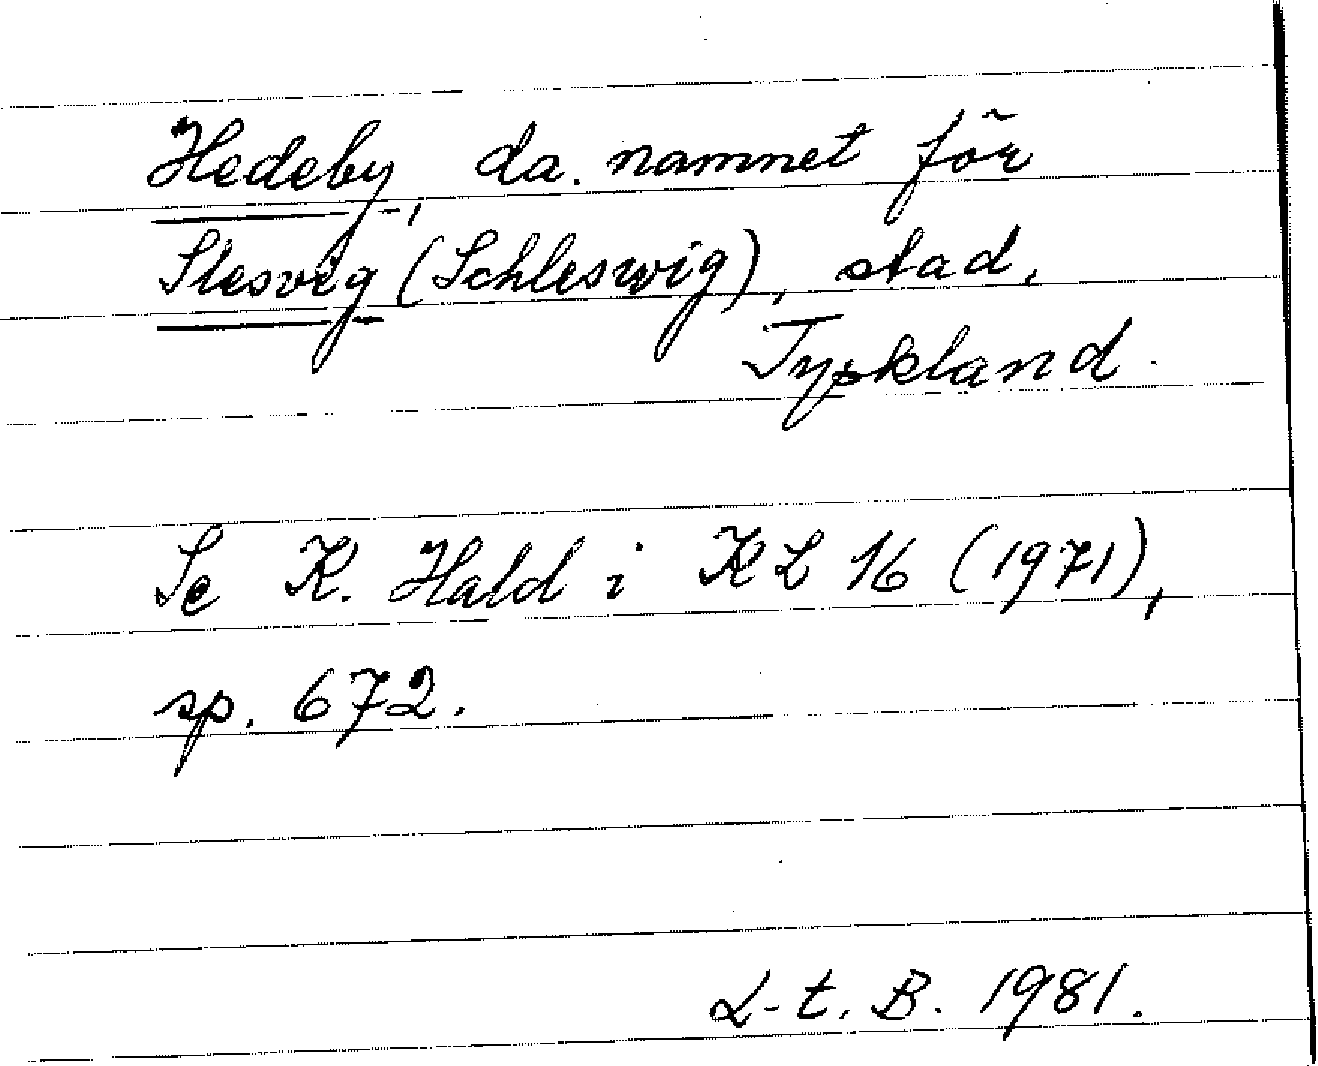 Hedeby, da. namnet för
Slesvig (Schleswig), stad,
Tyskland.
Se K. Hald i KL 16 (1971),
sp. 672.
L-t. B. 1981.